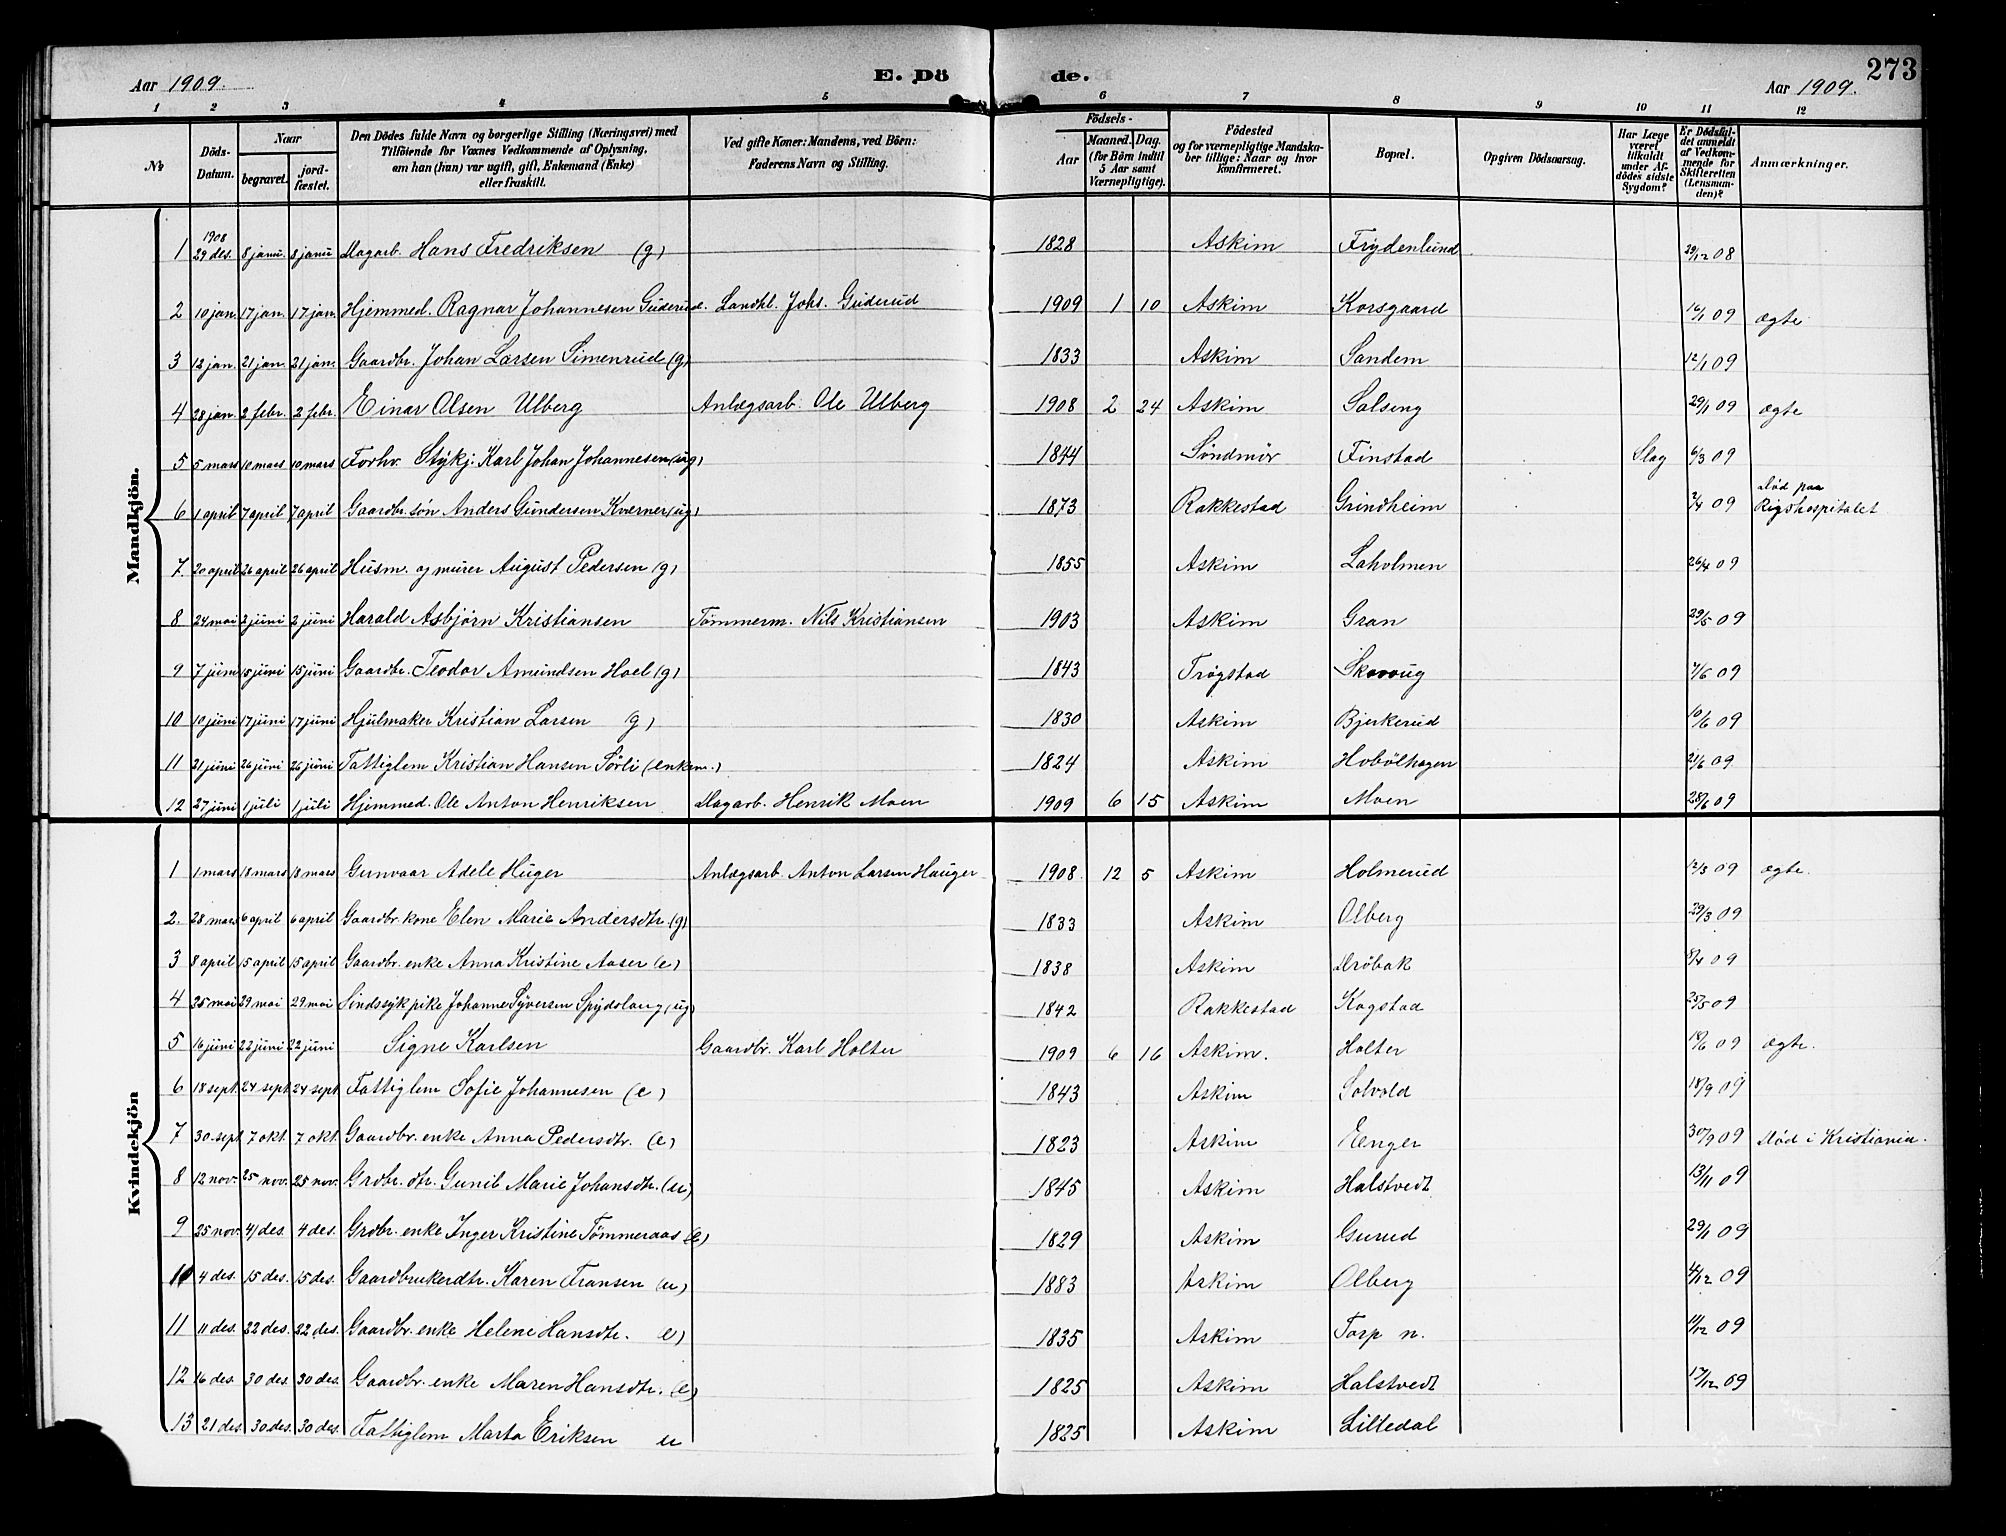 Aar 1909. E. Dö de. Aar 1909. 273
1 2 3 4 5 6 7 8 9 10 11 12
№ Döds-Datum. Naar begravet. jordfæstet. Den Dödes fulde Navn og borgerlige Stilling (Næringsvei) med Tilföiende for Voxnes Vedkommende af Oplysning, om han (hun) var ugift, gift, Enkemand (Enke) eller fraskilt. Ved gifte Koner: Mandens, ved Börn: Faderens Navn og Stilling. Födsels- Aar Maaned. Dag. (for Börn indtil 5 Aar samt Værnepligtige). Födested og for værnepligtige Mandskaber tillige: Naar og hvor konfirmeret. Bopæl. Opgiven Dödsaarsag. Har Læge været tilkaldt under Afdödes sidste Sygdom? Er Dödsfaldet anmeldt af Vedkommende for Skifteretten (Lensmanden)? Anmærkninger.
Mandkjön.
1 1908 29 des. 8 janu. 8 janu Dagarb. Hans Fredriksen (g) 1828 Askim Frydenlund 29/12 08
2 10 jan. 17 jan. 17 jan. Hjemmed. Ragnar Johannesen Guderud. Landhl. Johs. Guderud 1909 1 10 Askim Korsgaard 16/1 09 ægte
3 12 jan. 21 jan. 21 jan. Gaardbr. Johan Larsen Simenrud (g) 1833 Askim Sandem 12/1 09
4 28 jan. 2 febr. 2 febr. Einar Olsen Ulberg Anlægsarb. Ole Ulberg 1908 2 24 Askim Solseng 29/1 09 ægte
5 5 mars 10 mars 10 mars Forhv. Stykj. Karl Johan Johannesen (ug) 1844 Söndmör Finstad Slag 6/3 09
6 1 april 7 april 7 april Gaardbr.sön Anders Gundersen Kverner (ug) 1873 Rakkestad Grindheim 2/4 09 Död paa Rigshospitalet
7. 20 april 26 april 26 april Husm. og murer August Pedersen (g) 1855 Askim Laholmen 26/4 09
8 24 mai 2 juni 2 juni Harald Asbjörn Kristiansen Tömmerm. Nils Kristiansen 1903 Askim Gran 29/5 09
9 7 juni 15 juni 15 juni Gaardbr. Teodor Amundsen Hoel (g) 1843 Trögstad Skovoug 7/6 09
10 10 juni 17 juni 17 juni Hjulmaker Kristian Larsen (g) 1830 Askim Bjerkerud 10/6 09
11 21 juni 26 juni 26 juni Fattiglem Kristian Hansen Sörli (enkem.) 1824 Askim Hobölhagen 21/6 09
12 27 juni 1 juli 1 juli Hjemmed. Ole Anton Henriksen Dagarb. Henrik Moen 1909 6 15 Askim Moen 28/6 09
Kvindekjön
1 1 mars 18 mars 18 mars Gunvaar Adele Huger Anlægsarb. Anton Larsen Hauger 1908. 12 5 Askim Holmerud 12/3 09 ægte.
2. 28 mars 6 april 6 april Gaardbr. kone Elen Marie Andersdtr. (g) 1833 Askim Olberg 29/3 09
3 8 april 15 april 15 april Gaardbr. enke Anna Kristine Aaser (e) 1838 Askim Dröbak 8/4 09
4 25 mai 29 mai 29 mai Sindssyk pike Johanne Syversen Spydslaug (ug) 1842 Rakkestad Kogstad 25/5 09
5 16 juni 22 juni 22 juni Signe Karlsen Gaardbr. Karl Holter 1909 6 16 Askim. Holter 18/6 09 Ægte.
6 18 sept. 24 sept. 24 sept. Fattiglem Sofie Johannesen (e) 1843 Askim Solvold 18/9 09
7 30 sept 7 okt. 7 okt. Gaardbr. enke Anna Pedersdtr. (e) 1823 Askim Eenger 30/9 09 Död i Kristiania.
8 12 nov. 25 nov. 25 nov. Grdbr. dtr. Gunil Marie Johansdtr. (u) 1845 Askim Halstvedt 13/11 09
9 25 nov. 4 des. 4 des. Grdbr. enke Inger Kristine Tömmeraas (e) 1829 Askim Gurud 29/11 09
10 4 des. 15 des. 15 des. Gaardbrukerdtr. Karen Fransen (u) 1883 Askim Olberg 4/12 09
11 11 des. 22 des. 22 des. Gaardbr. enke Helene Hansdtr. (e) 1835 Askim Torp n. 11/12 09
12 16 des. 30 des. 30 des. Gaardbr. enke Maren Hansdtr. (e) 1825 Askim Halstvedt 17/12 09
13 21 des. 30 des. 30 des. Fattiglem Marta Eriksen u 1825 Askim Liltedal